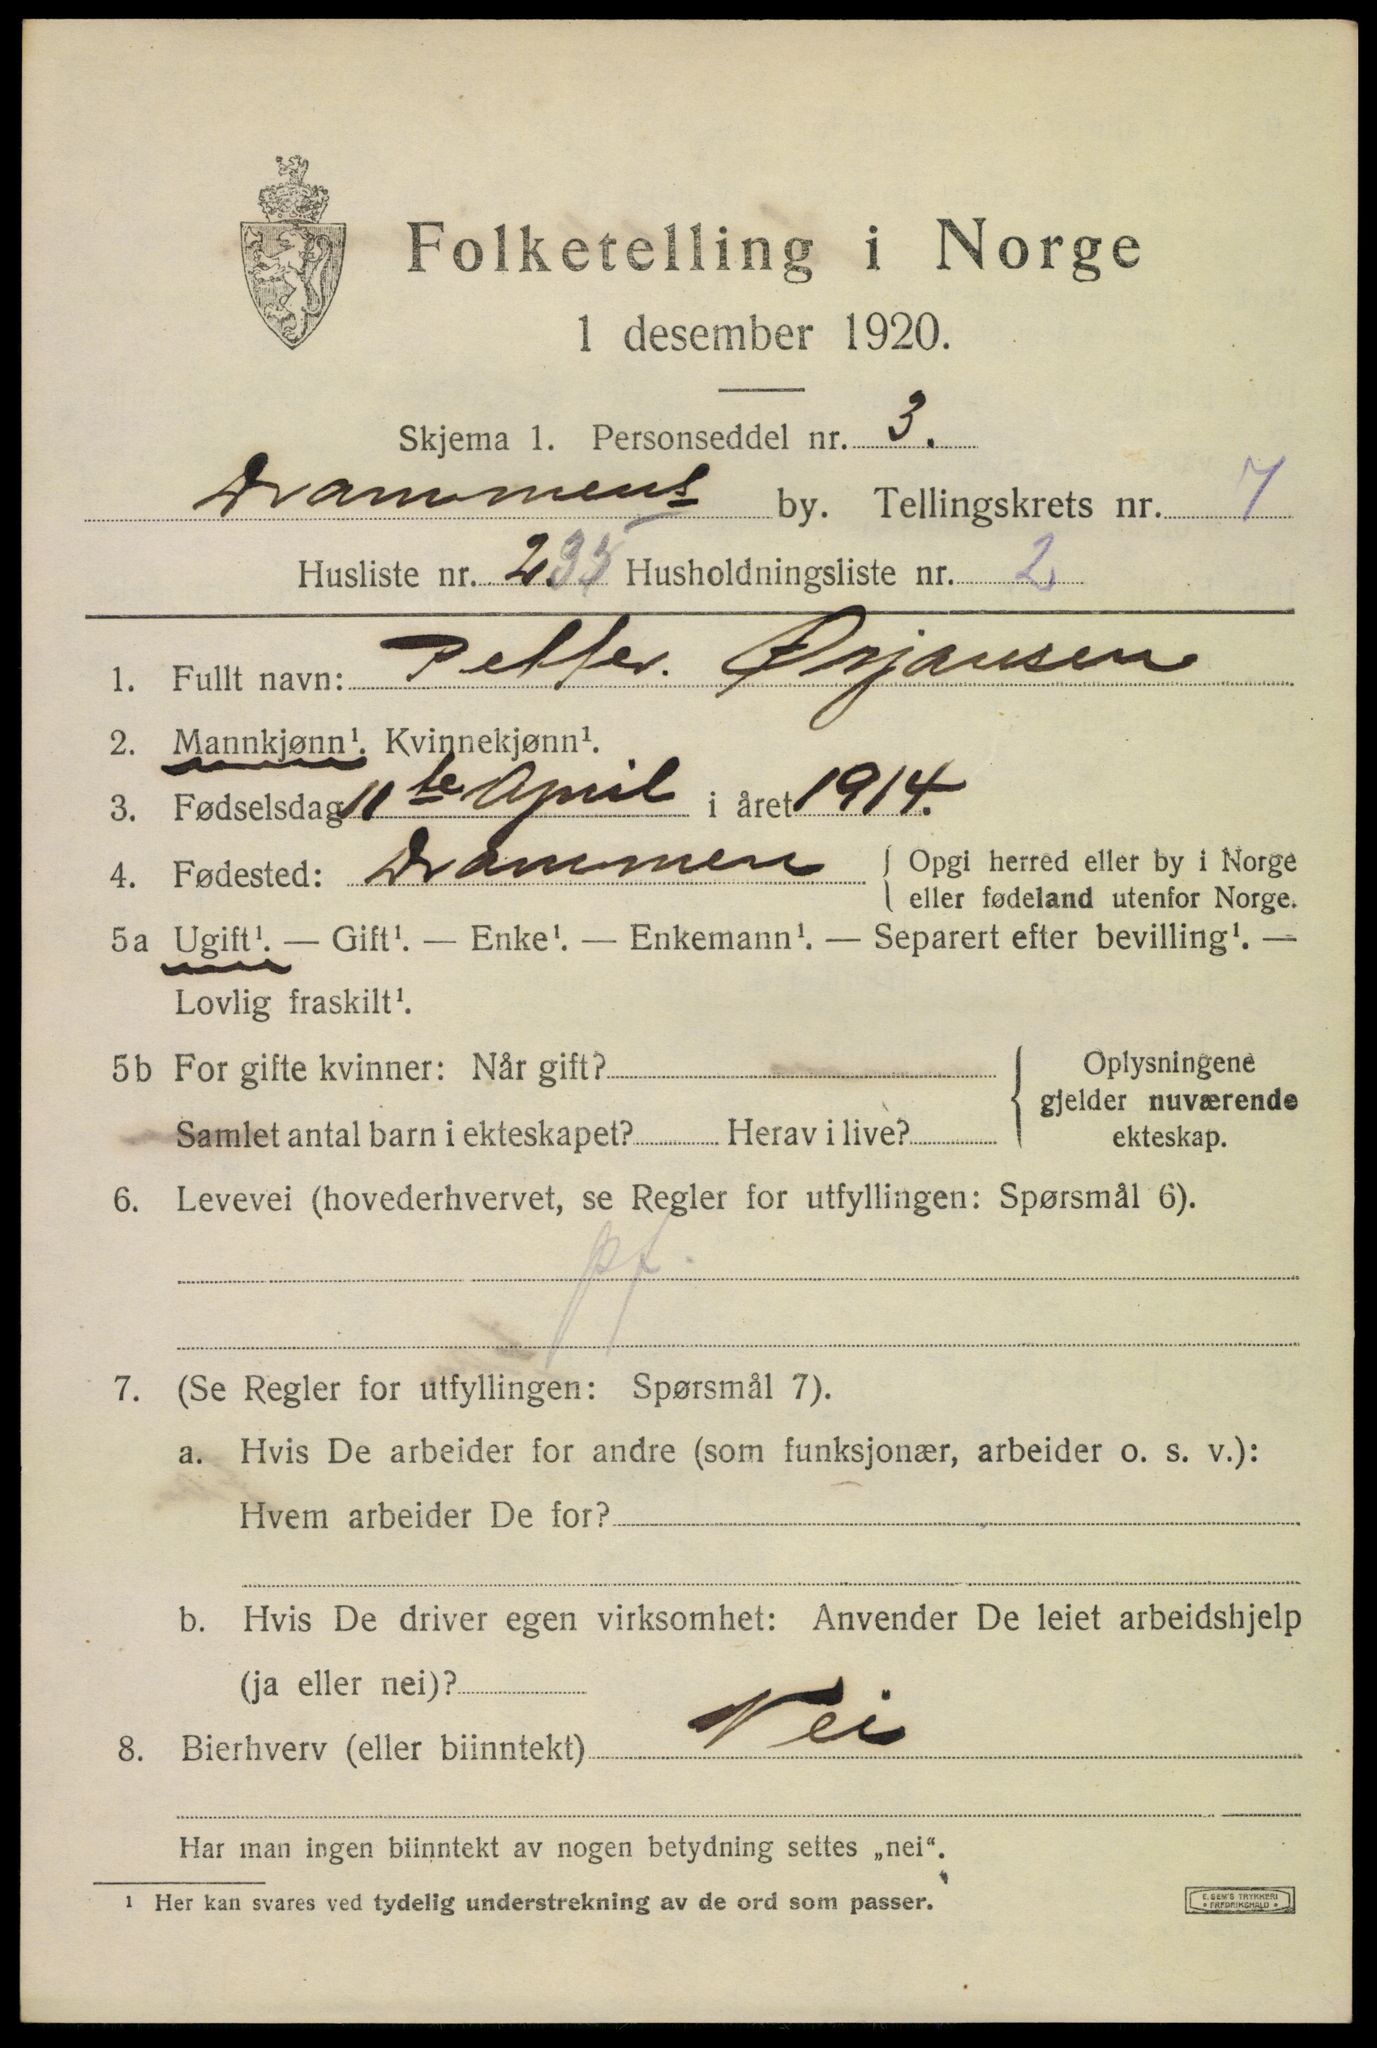 Folketelling i Norge
1 desember 1920.
Skjema 1. Personseddel nr. 3.
Drammens by. Tellingskrets nr. 7
Husliste nr. 2 35 Husholdningsliste nr. 2
1. Fullt navn: Petter. Ørjansen
2. Mannkjønn¹. Kvinnekjønn¹.
3. Fødselsdag 11te April i året 1914.
4. Fødested: Drammen { Opgi herred eller by i Norge
eller fødeland utenfor Norge.
5a Ugift¹. — Gift¹. — Enke¹. — Enkemann¹. — Separert efter bevilling¹. —
Lovlig fraskilt¹.
5b For gifte kvinner: Når gift? { Oplysningene
gjelder nuværende
Samlet antal barn i ekteskapet? Herav i live? ekteskap.
6. Levevei (hovederhvervet, se Regler for utfyllingen: Spørsmål 6).
pf.
7. (Se Regler for utfyllingen: Spørsmål 7).
a. Hvis De arbeider for andre (som funksjonær, arbeider o. s. v.):
Hvem arbeider De for?
b. Hvis De driver egen virksomhet: Anvender De leiet arbeidshjelp
(ja eller nei)?
8. Bierhverv (eller biinntekt) Nei
Har man ingen biinntekt av nogen betydning settes „nei“.
¹ Her kan svares ved tydelig understrekning av de ord som passer.
E. SEM'S TRYKKERI
FREDRIKSHALD